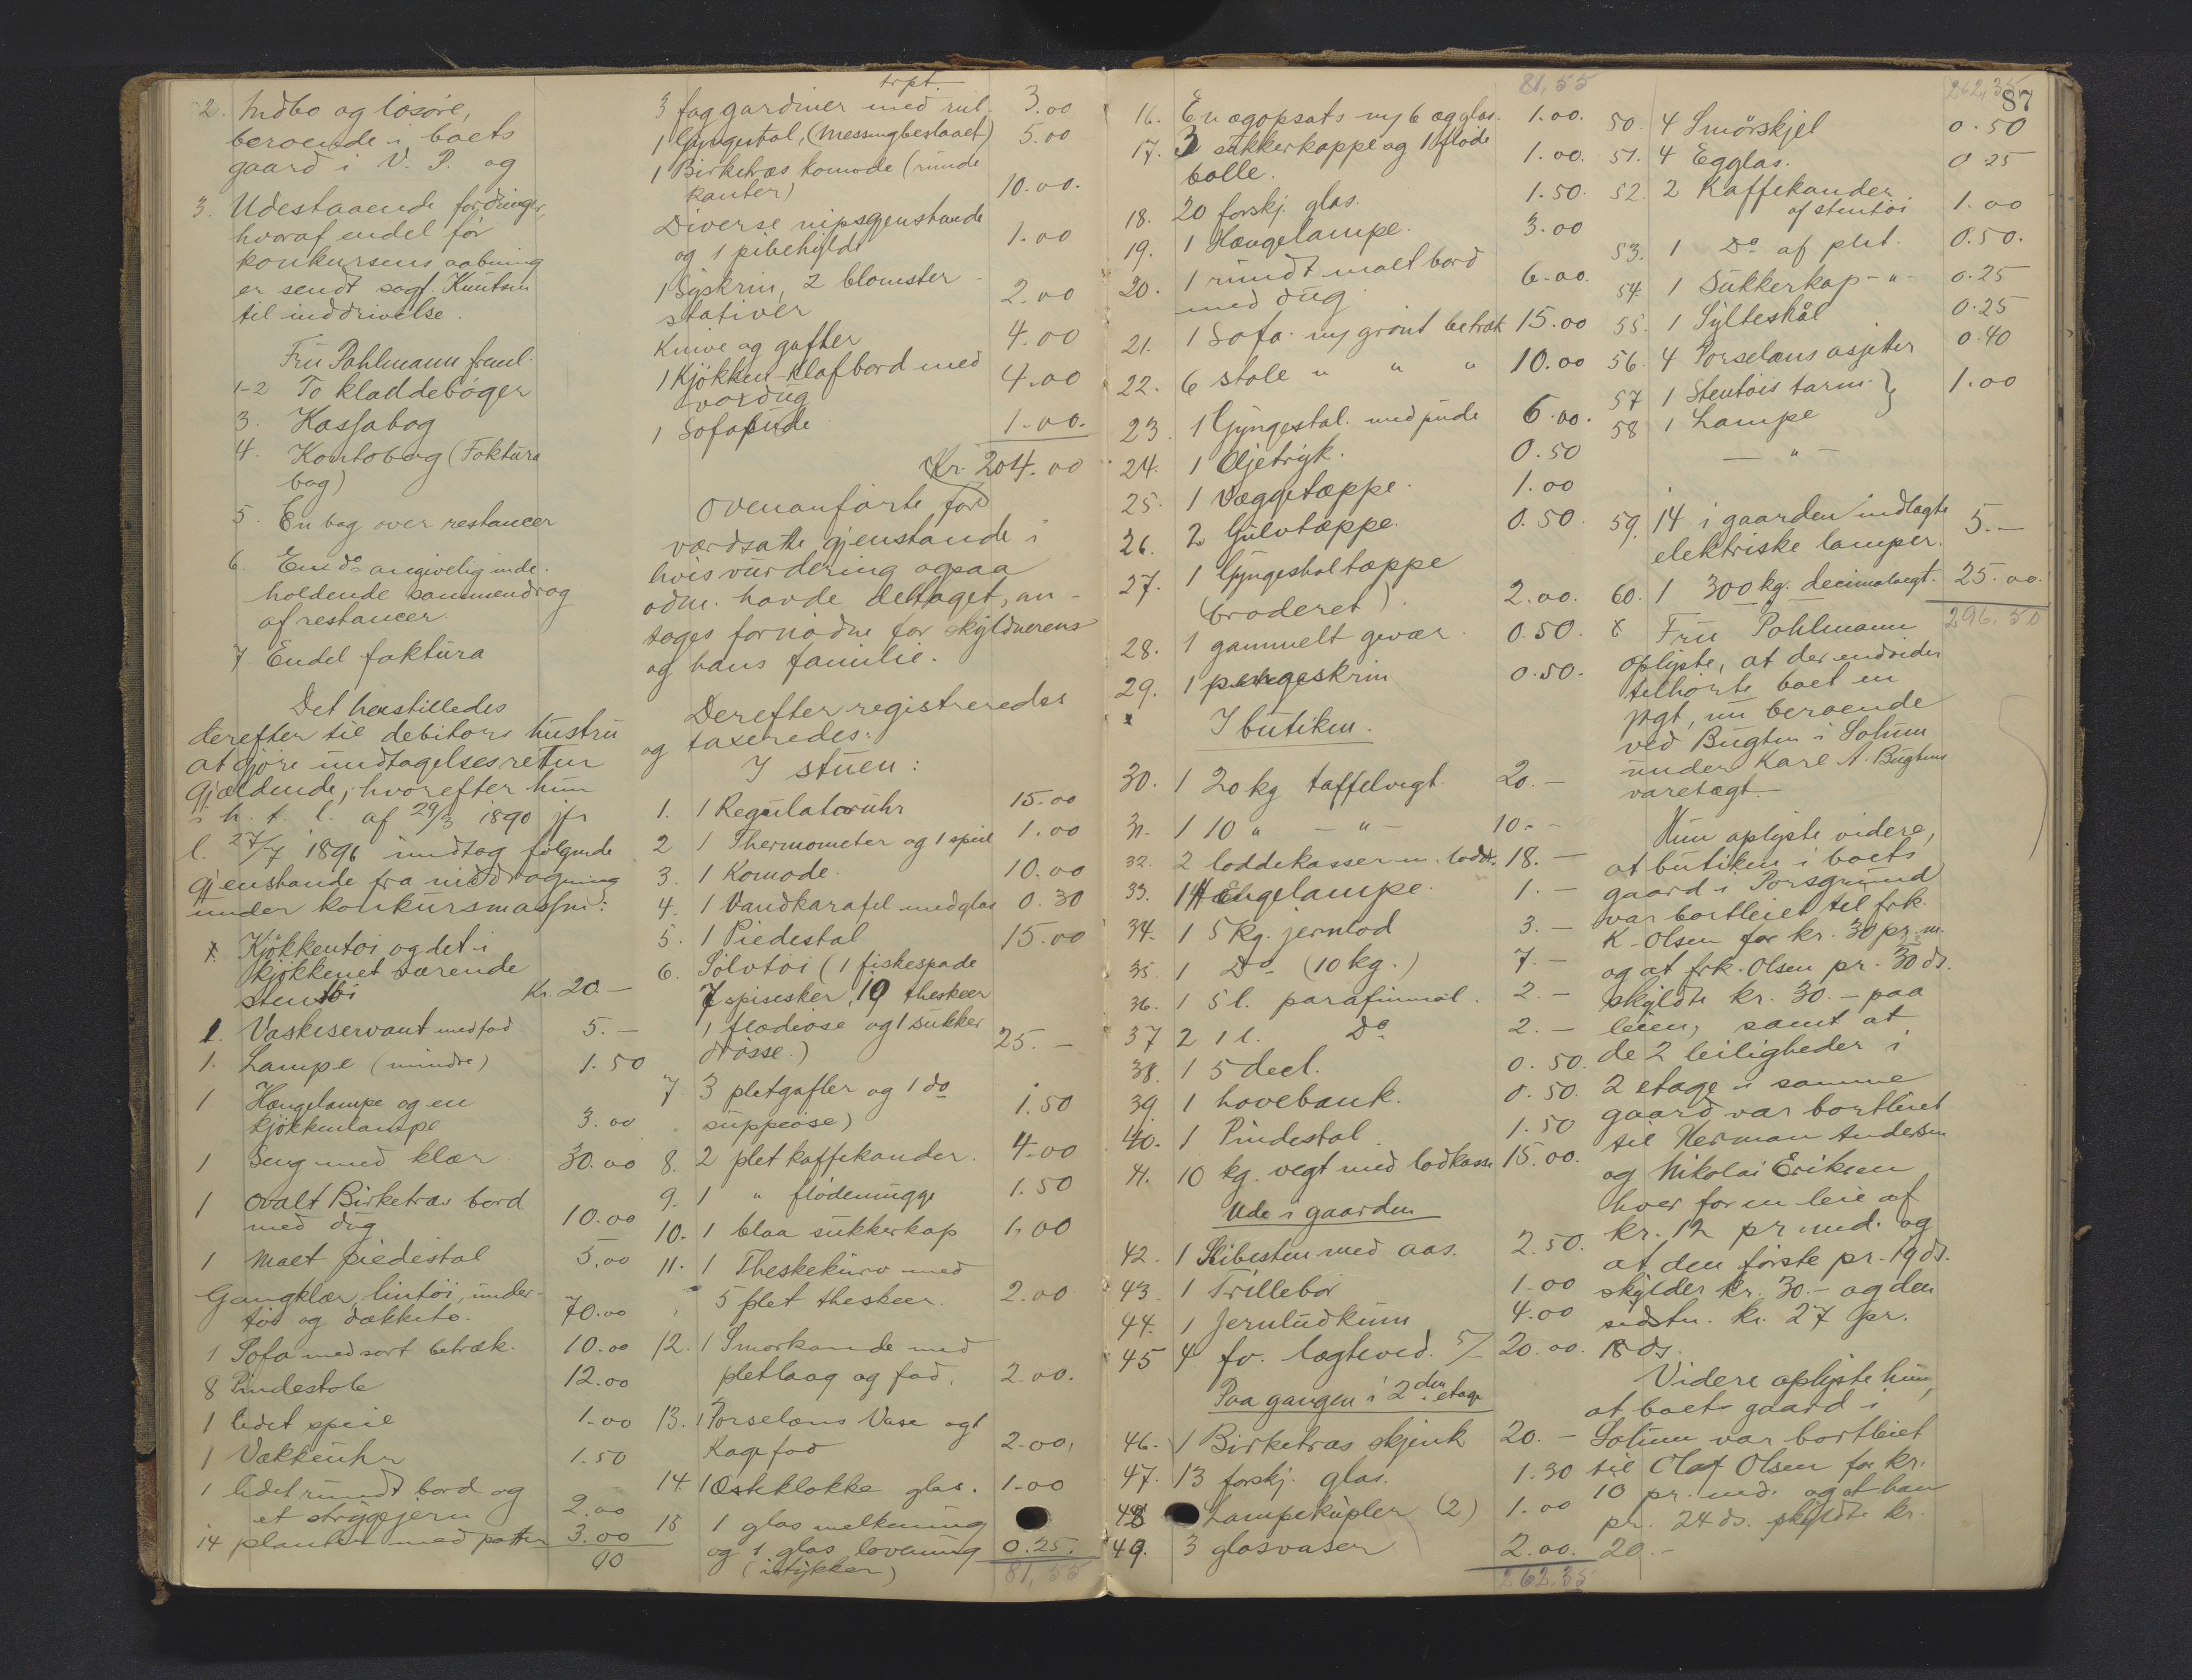 2. Indbo og løsøre,
beroende i boets
gaard i V. P. og
3. Udestaaende fordringer,
hvoraf endel før
konkursens aabning
er sendt sagf. Knutsen
til inddrivelse.
Fru Pohlmann freml.
1-2 To kladdebøger
3. Kassabog
4. Kontobog (Faktura
bog)
5. En bog over restancer
6. En do angivelig inde-
holdende sammendrag
af restancer.
7. Endel faktura
Det henstilledes
derefter til debitors hustru
at gjøre undtagelsesretten
gjældende, hvorefter hun
i h. t. l. af 29/3 1890 jfr
l. 27/7 1896 undtog følgende
gjenstande fra inddragning
under konkursmassen:
x. Kjøkkentøi og det i
kjøkkenet værende
stentøi Kr. 20.-
1. Vaskeservant med fad 5.-
1. Lampe (mindre) 1.50
1 Hængelampe og en
kjøkkenlampe 3.00
1 Seng med klær 30.00
1 ovalt Birketræs bord
med dug 10.00
1 malet piedestal 5.00
Gangklær, lintøi, under-
tøi og dækketø. 70.00
1 Sofa med sort betræk. 10.00
8 Pindestole 12.00
1 lidet speil 1.00
1 Vækkeuhr 1.50
1 lidet rundt bord og
et strygejern 2.00
14 planter med potter 3.00
00
trpt.
3 fag gardiner med rul. 3.00
1 Gyngestol, (Messingbeslaaet) 5.00
1 Birketræs komode (runde
kanter) 10.00.
Diverse nipsgjenstande
og 1 pibehylde 1.00
1 Syskrin, 2 blomster-
stativer 2.00
Knive og gafler 4.00
1 Kjøkken-klafbord med
voxdug 4.00
1 Sofapude 1.00.
Kr. 204.00
Ovenanførte før
værdsatte gjenstande i
hvis vurdering ogsaa
adm. havde deltaget, an-
toges fornødne for skyldneren
og hans familie.
Derefter registreredes
og taxeredes:
I stuen:
1. 1 Regulatoruhr 15.00
2 1 Thermometer og 1 speil 1.00
3. 1 Komode. 10.00
4. 1 Vandkarafel med glas 0.30
5. 1 Piedestal 15.00
6. Sølvtøi (1 fiskespade
7 spiseskeer, 10 theskeer
1 flødeøse og 1 sukker
drosse.) 25.-
7. 3 pletgafler og 1 do
suppeøse) 1.50
8. 2 plet kaffekander. 4.00
9. 1 " flødemugge 1.50
10. 1 blaa sukkerkop 1.00
11. 1 Theskekurv med
5 plet theskeer. 2.00
12. 1 Smørkande med
pletlaag og fad. 2.00.
13. 1 Porselæns Vase og 1
Kagefad 2.00.
14. 1 Osteklokke glas. 1.00
15 1 glas melkemug
og 1 glas 0.25.
(istykker) 81,55
81,55
16. En ægopsats m/ 6 ægglas. 1.00.
17. 3 sukkerkoppe og 1 fløde
bolle. 1.00.
18. 20 forskj. glas. 1.50.
19. 1 Hængelampe. 3.00
20. 1 rundt malt bord
med dug 6.00.
21. 1 Sofa. m/ grønt betræk 15.00
22. 6 stole " " " 10.00
23. 1 Gyngestol. med pude 6.00.
24. 1 Oljetryk. 0.50
25. 1 Væggetæppe. 1.00
26. 2 Gulvtæppe. 0.50.
27. 1 Gyngestoltæppe
(broderet). 2.00.
28. 1 gammelt gevær. 0.50.
29. 1 pengeskrin 0.50.
x I butiken.
30. 1 20 kg taffelvegt. 20.-
31. 1 10 " - " - 10.-
32. 2 loddekasser m. lodd. 18.-
33. 1 Hængelampe. 1.-
34. 1 5 kg. jernlod 3.-
35. 1 Do (10 kg.) 7.-
36. 1 5 l. parafinmål. 2.-
37 2 1 l. Do 2.-
38. 1 5 decl. 0.50.
39. 1 hovebænk. 0.50.
40. 1 Pindestol. 1.50
41. 10 kg. vegt med lodkasse 15.00.
Ude i gaarden
42. 1 Slibesten med aas. 2.50.
43. 1 Trillebør 1.00
44. 1 Jernludkum 4.00
45 4 fv. lægteved. 5/- 20.00.
Paa gangen i 2den etage
46. 1 Birketræs skjenk 20.-
47. 13 forskj. glas. 1.30
48 Lampekupler (2) 1.00
49. 3 glasvaser 2.00.
262.35
262,35
87
50. 4 Smørskjel 0.50
51. 4 Egglas. 0.25
52. 2 Kaffekander
af stentøi 1.00
53. 1 Do af plet. 0.50.
54. 1 Sukkerkop -"- 0.25
55. 1 Sylteskål 0.25
56. 4 Porselæns asjetter 0.40
57 1 Stentøis tarin }
58 1 Lampe 1.00
- " -
59. 14 i gaarden indlagte
elektriske lamper. 5.-
60. 1 300 kg. decimalvegt. 25.00.
296.50
x Fru Pohlmann
oplyste, at der endvidere
tilhørte boet en
jagt, nu beroende
ved Bugten i Solum
under Karl A. Bugtens
varetægt.
Hun oplyste videre,
at butiken i boets
gaard i Porsgrund
var bortleiet til frk.
K. Olsen for kr. 30 pr. m.
og at frk. Olsen pr. 30 ds.
skyldte kr. 30.- paa
leien, samt at
de 2 leiligheder i
2 etage i samme
gaard var bortleiet
til Herman Andersen
og Nikolai Eriksen
hver for en leie af
kr. 12 pr md. og
at den første pr. 19 ds.
skylder kr. 30.- og den
sidste. kr. 27 pr.
18 ds.
Videre oplyste hun,
at boets gaard i
Solum var bortleiet
til Olaf Olsen for kr.
10 pr. md. og at han
pr. 24 ds. skyldte kr.
20.-